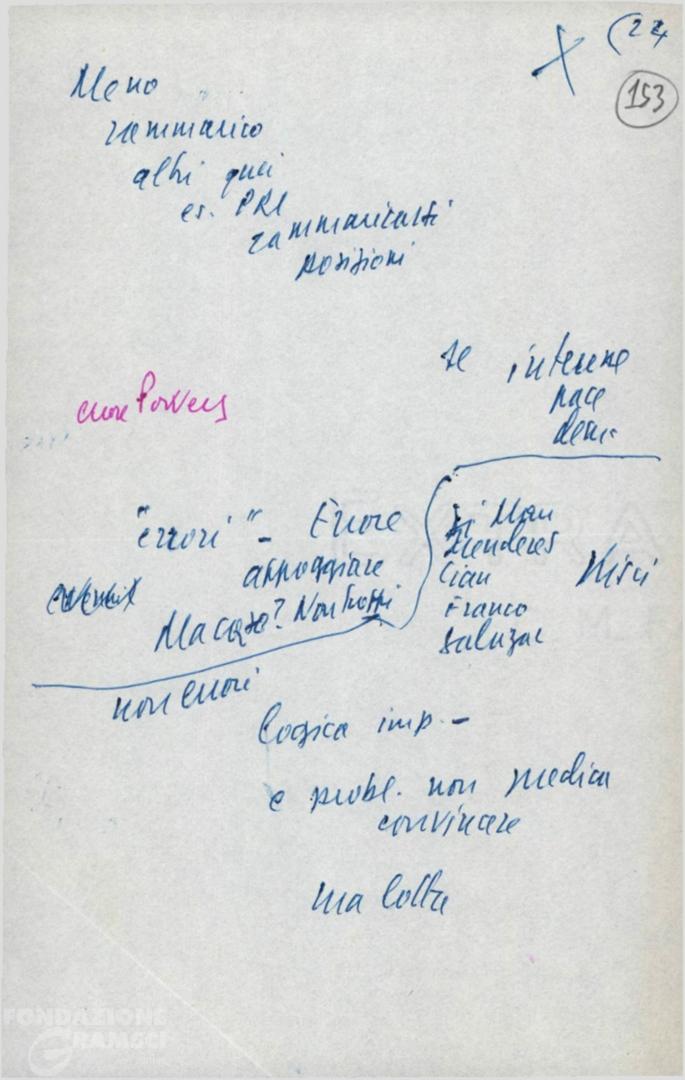 (22
153
Meno
rammarico
altri quei
es. PRI
rammaricati
posizioni
se interesse
pace
dem.
errore Powers
"errori" - Errore
appoggiare
Ma cos'è? Non troppi
Si Man
Menderes
Cian
Franco
Salazar
non errori
logica imp. -
e probl. non predica
convincere
ma lotta
FONDAZIONE
GRAMSCI